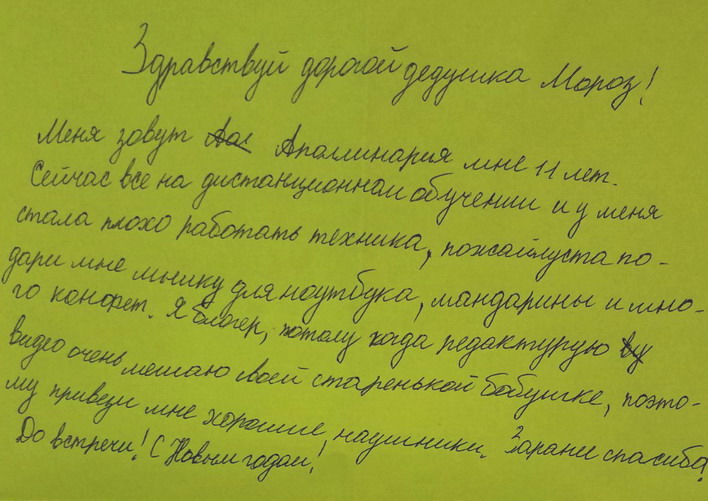 Здравствуй дорогой дедушка Мороз!
Меня зовут Апаллинария мне 11 лет.
Сейчас все на дистанционном обучении и у меня
стала плохо работать техника, пожайлуста по-
дари мне мышку для ноутбука, мандарины и мно-
го канфет. Я блогер, потому когда редактурую
видео очень мешаю своей старенькой бабушке, поэто-
му привези мне хорошие наушники. Зарание спасиба!
До встречи! С Новым годам!